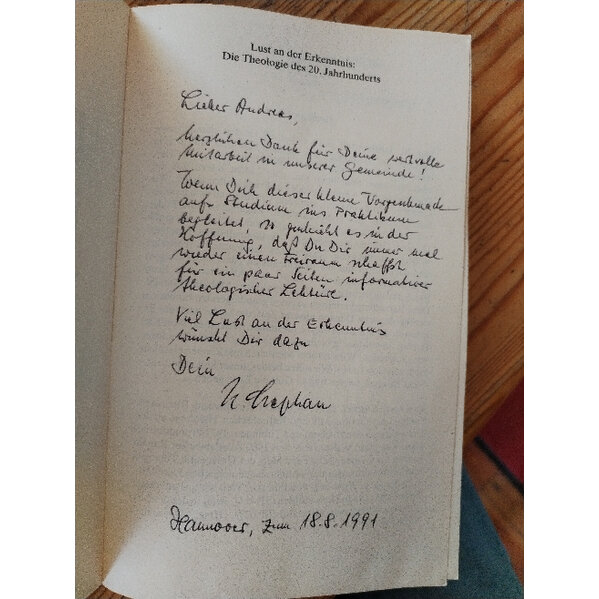 Lust an der Erkenntnis:
Die Theologie des 20. Jahrhunderts
Lieber Andreas,
herzlichen Dank für Deine wertvolle
Mitarbeit in unserer Gemeinde!
Wenn Dich dieser kleine
aufs Studium ins Praktikum
begleitet, so geschieht es in der
Hoffnung, daß Du Dir immer mal
wieder einen Freiraum schaffst
für ein paar Seiten informativer
theologischer Lektüre.
Viel Lust an der Erkenntnis
wünscht Dir dazu
Dein
Hannover, zum 18.8.1991